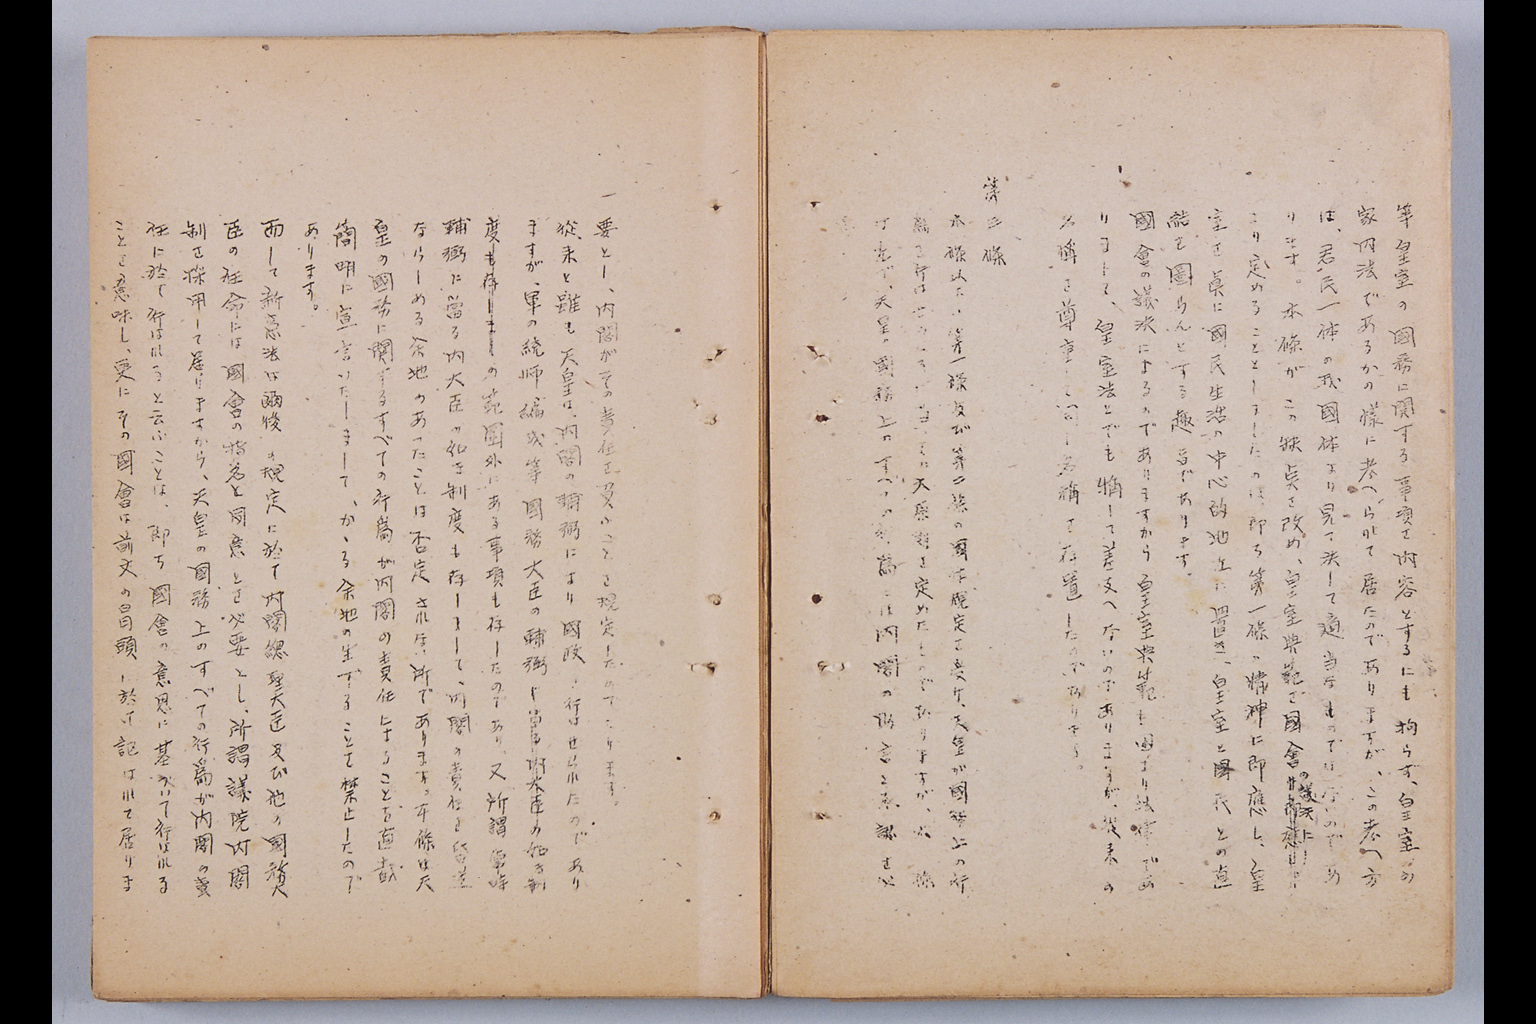 等皇室の國務に関する事項を内容とするにも拘らず、皇室の
家内法であるかの様に考へられて居たのでありますが、この考へ方
は、君民一体の我國体より見て決して適当なものではないのであ
ります。本條がこの缺点を改め、皇室典範を國會の議決に
より定めることとしましたのは、即ち第一條の精神に即應し、皇
室を真に國民生活の中心的地位に置き、皇室と國民との直
結を圖らんとする趣旨であります。
國會の議決によるのでありますから皇室典範も固より法律であ
りまして、皇室法とでも稱して差支へないのでありますが、従来の
名稱を尊重して同じ名稱を存置したのであります。
第三條
本條以下は第一條及び第二條の國体規定を受け、天皇が國務上の行
に大原則を定めたものでありますが、本條
は先づ、天皇の國務上のすべての行為には内閣の助言と承認を必
一要とし、内閣がその責任を負ふことを規定したのであります。
従来と雖も天皇は、内閣の輔弼により國政を行はせられたのであり
ますが、軍の統帥編成等國務大臣の輔弼
の範圍外にある事項も存したのであり、又所謂常時
輔弼に當る内大臣の如き制度も存しまして、内閣の責任を
ならしめる余地のあつたことは否定されない所であります。本條は天
皇の國務に関するすべての行為が内閣の責任によることを直截
簡明に宣言いたしまして、かゝる余地の生ずることを禁止したので
あります。
而して新憲法は爾後の規定に於て内閣總理大臣及び他の國務大
臣の任命には國會の指名と同意とを必要とし、所謂議院内閣
制を採用して居りますから、天皇の國務上のすべての行為が内閣の責
任に於て行はれると云ふことは、即ち國會の意思に基いて行はれる
ことを意味し、更にその國會は前文の冒頭に於て記されて居りま